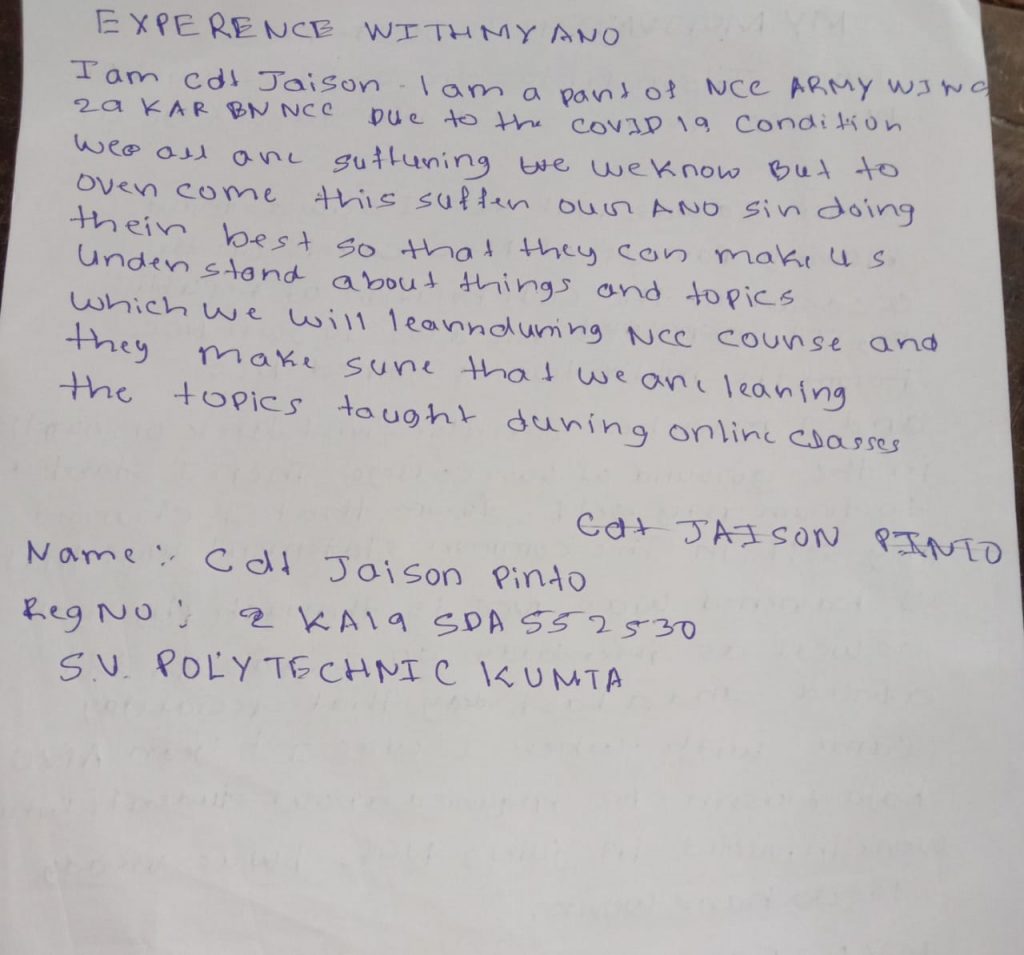 EXPERENCE WITH MY ANO
I am cdt Jaison. I am a part of NCC ARMY WING
29 KAR BN NCC Due to the COVID 19 condition
wee all are suffuring we weknow But to
over come this suffer our ANO sir doing
their best so that they can make us
understand about things and topics
which we will learnduring NCC course and
they make sure that we are learing
the topics taught during online classes
Cdt JAISON PINTO
Name: Cdt Jaison Pinto
Reg NO: 2 KA19 SDA 552530
S.V. POLYTECHNIC KUMTA